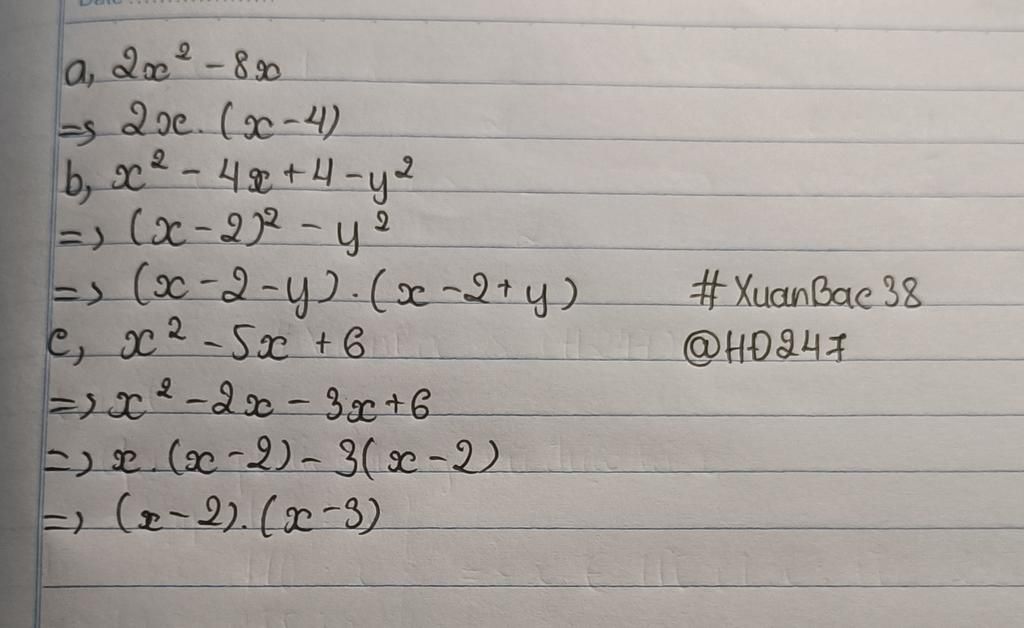 a, 2x² - 8x
=> 2x. (x - 4)
b, x² - 4x + 4 - y²
=> (x - 2)² - y²
=> (x - 2 - y). (x - 2 + y)
#XuanBac38
c, x² - 5x + 6
@HD247
=> x² - 2x - 3x + 6
=> x. (x - 2) - 3(x - 2)
=> (x - 2). (x - 3)